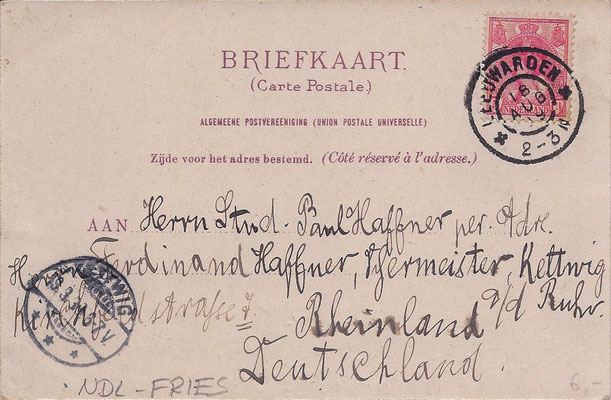 BRIEFKAART.
(Carte Postale.)
ALGEMEENE POSTVEREENIGING (UNION POSTALE UNIVERSELLE)
Zijde voor het adres bestemd. (Côté réservé à l'adresse.)
NEDERLAND
LEEUWARDEN
18
AUG
2-3N
AAN Herrn Stud. Paul Haffner per Adr.
Ferdinand Haffner, Kettwig
a/d Ruhr.
Rheinland
Deutschland.
KETTWIG
NDL-FRIES
6,-